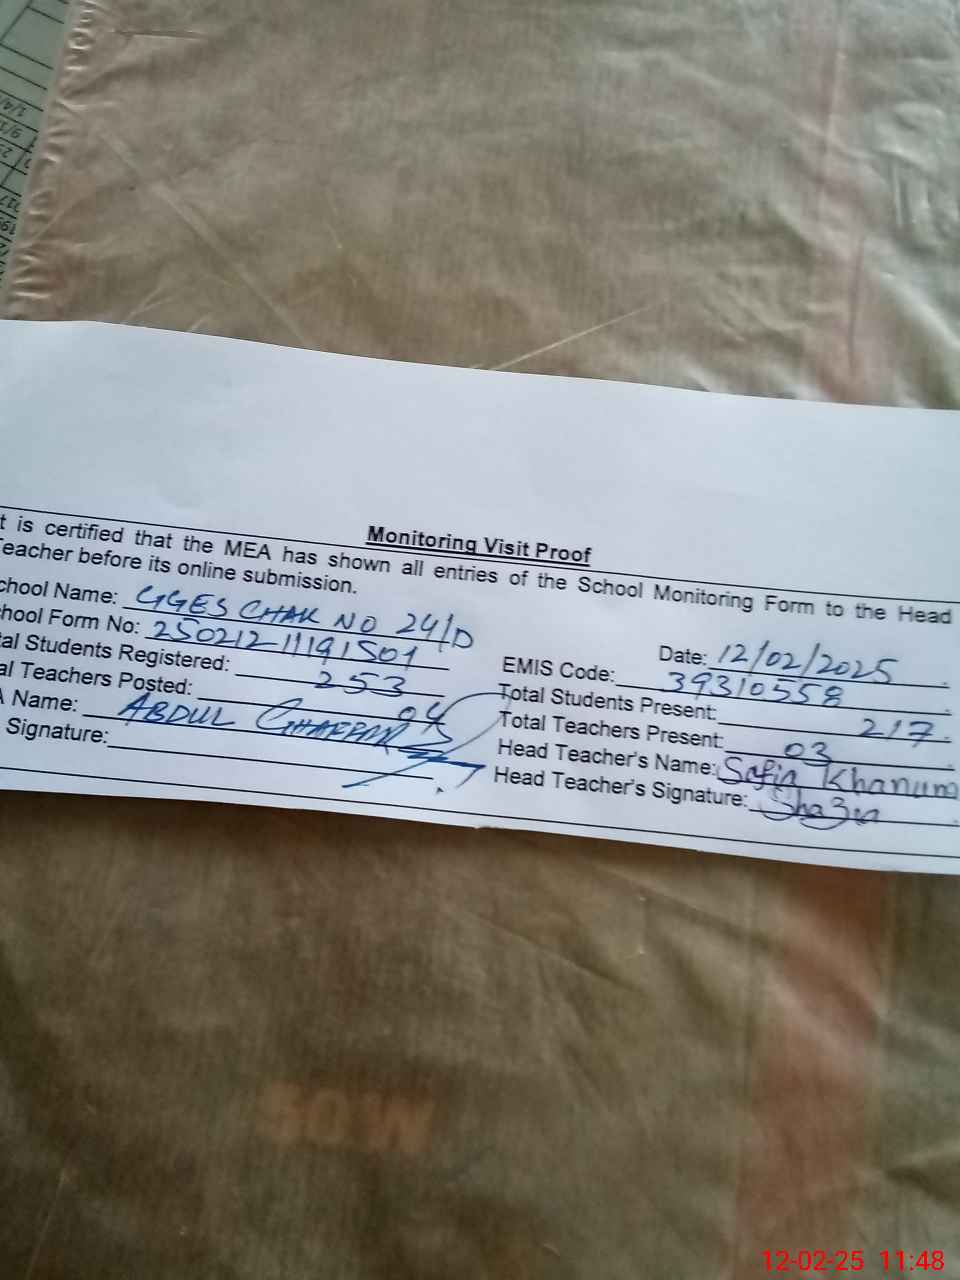 Monitoring Visit Proof
t is certified that the MEA has shown all entries of the School Monitoring Form to the Head
Teacher before its online submission.
chool Name: GGES CHAK NO 24/D
Date: 12/02/2025
hool Form No: 250212-11191501
EMIS Code: 39310558
tal Students Registered: 253
Total Students Present: 217
al Teachers Posted: 04
Total Teachers Present: 03
A Name: ABDUL GHAFFAR
Head Teacher's Name: Safia Khanum
Signature:
Head Teacher's Signature:
12-02-25 11:48